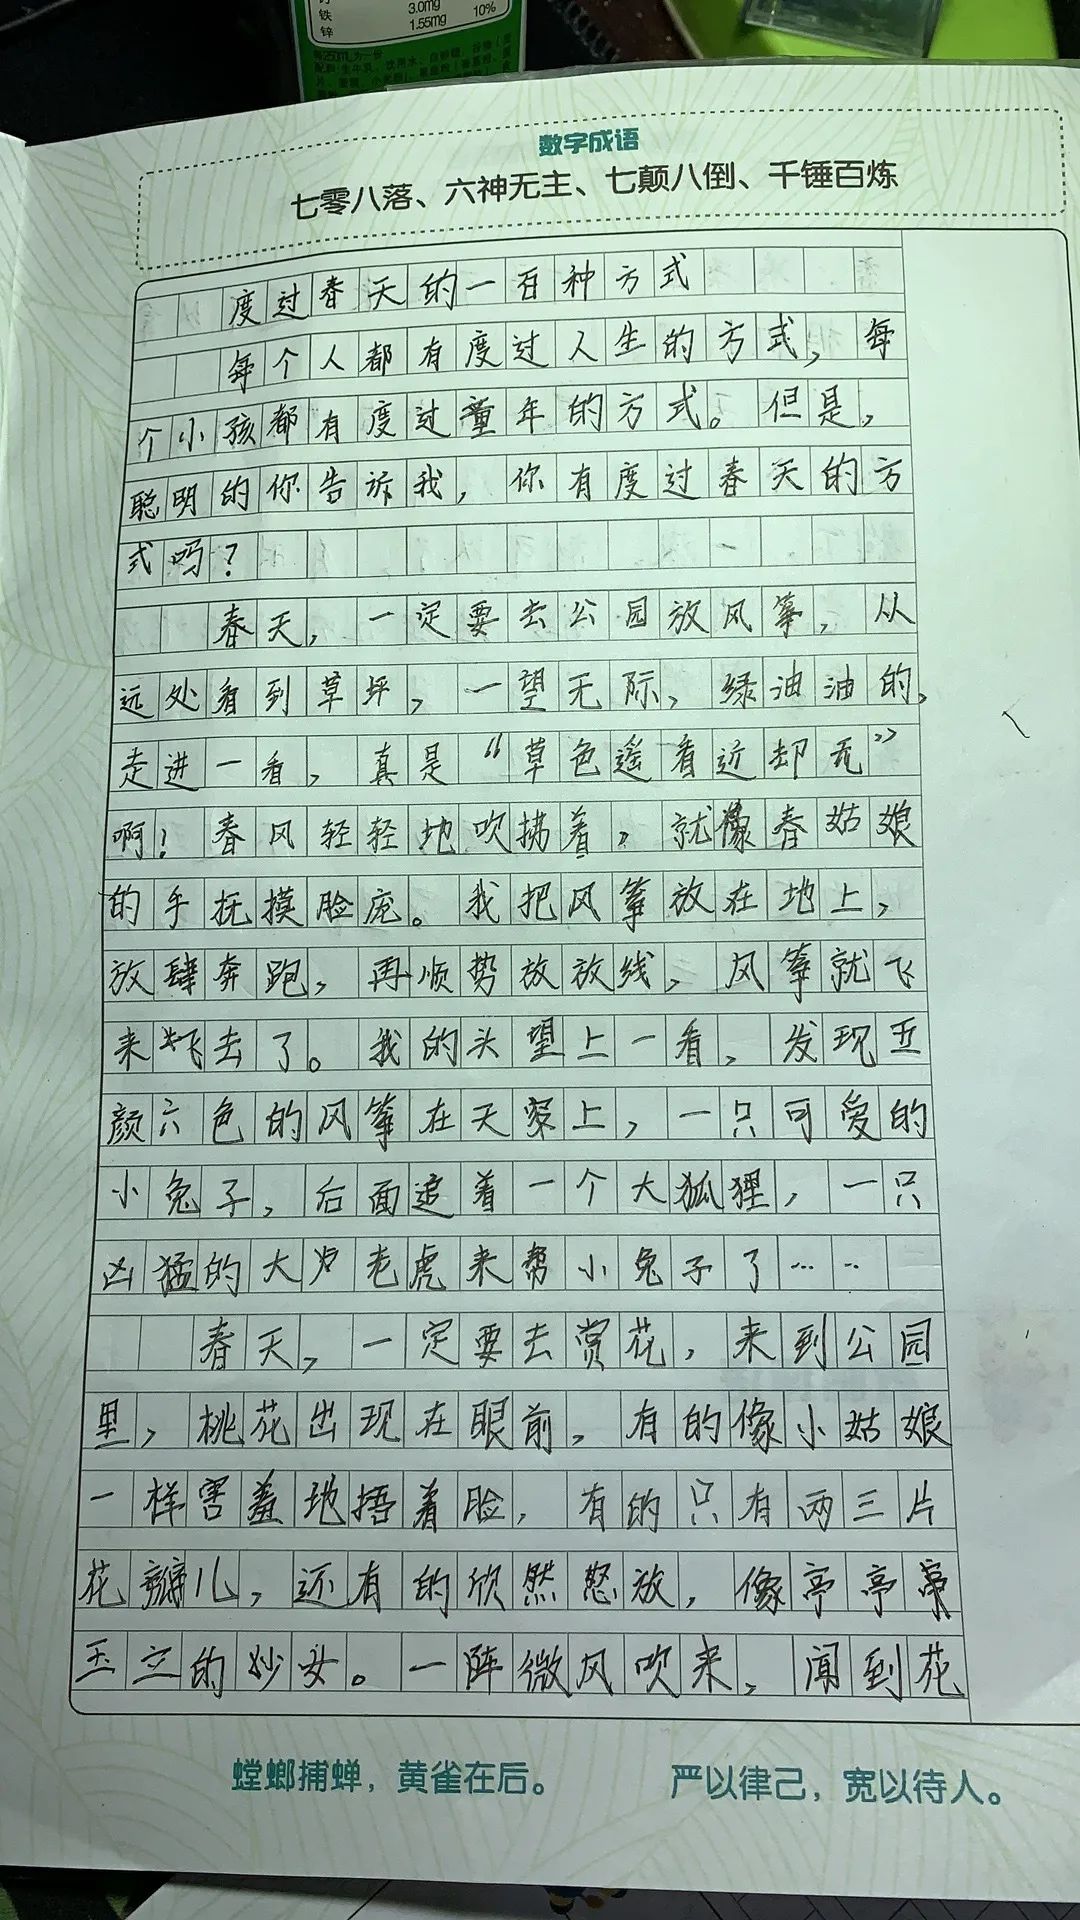 铁 3.0mg 10%
锌 1.55mg
数字成语
七零八落、六神无主、七颠八倒、千锤百炼
度过春天的一百种方式
每个人都有度过人生的方式，每
个小孩都有度过童年的方式。但是，
聪明的你告诉我，你有度过春天的方
式吗？
春天，一定要去公园放风筝，从
远处看到草坪，一望无际，绿油油的，
走进一看，真是“草色遥看近却无”
啊！春风轻轻地吹拂着，就像春姑娘
的手抚摸脸庞。我把风筝放在地上，
放肆奔跑，再顺势放放线，风筝就飞
来飞去了。我的头望上一看，发现五
颜六色的风筝在天空上，一只可爱的
小兔子，后面追着一个大狐狸，一只
凶猛的大老虎来帮小兔子了……
春天，一定要去赏花，来到公园
里，桃花出现在眼前，有的像小姑娘
一样害羞地捂着脸，有的只有两三片
花瓣儿，还有的欣然怒放，像亭亭
玉立的妙女。一阵微风吹来，闻到花
螳螂捕蝉，黄雀在后。
严以律己，宽以待人。